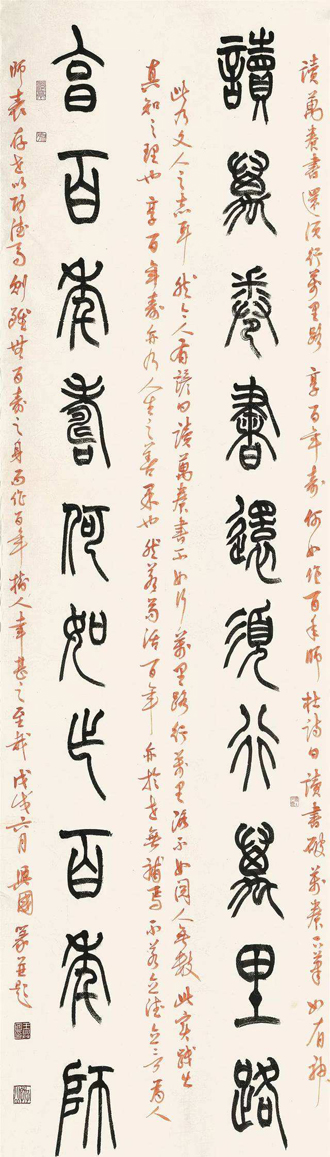 讀萬卷書還須行萬里路享百年壽何如作百年師杜詩曰讀書破萬卷下筆如有神
讀萬卷書還須行萬里路
此乃文人之志耳然今人有諺曰讀萬卷書不如行萬里路行萬里路不如閱人無數此實踐出
真知之理也享百年壽亦乃人生之善果也然若苟活百年亦於世無補焉不若立德立言為人
享百年壽何如作百年師
師表存世以功德為例雖無百壽之身而作百年樹人幸甚之至哉戊戌六月興國篆並題